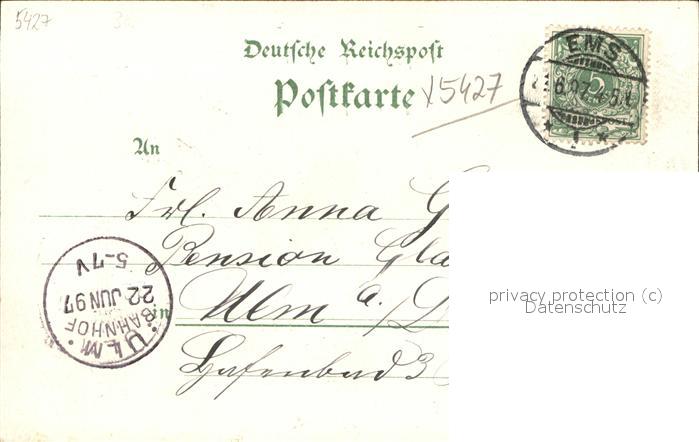 5427
Deutsche Reichspost
Postkarte
x5427
EMS
5
6.97
1
An
Frl. Anna G
Pension Gla
in Ulm a./D
Hafenbad 3
ULM
BAHNHOF
22 JUN 97
5-7V
privacy protection (c)
Datenschutz